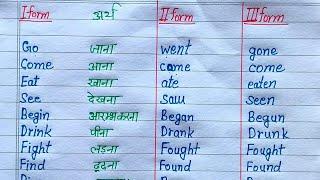 I form अर्थ II form III form
Go जाना went gone
Come आना came come
Eat खाना ate eaten
See देखना saw seen
Begin आरम्भ करना Began Begun
Drink पीना Drank Drunk
Fight लड़ना Fought Fought
Find ढूढना Found Found